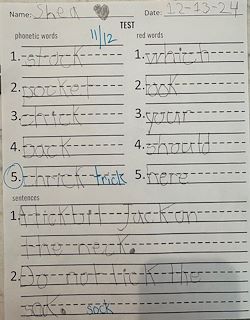 Name: Shea Date: 12-13-24
TEST
phonetic words 11/12 red words
1. stock 1. which
2. pocket 2. look
3. chick 3. your
4. back 4. should
5. thrick trick 5. here
sentences
1. A tick bit Jack on
the neck.
2. Do not lick the
sok. sock